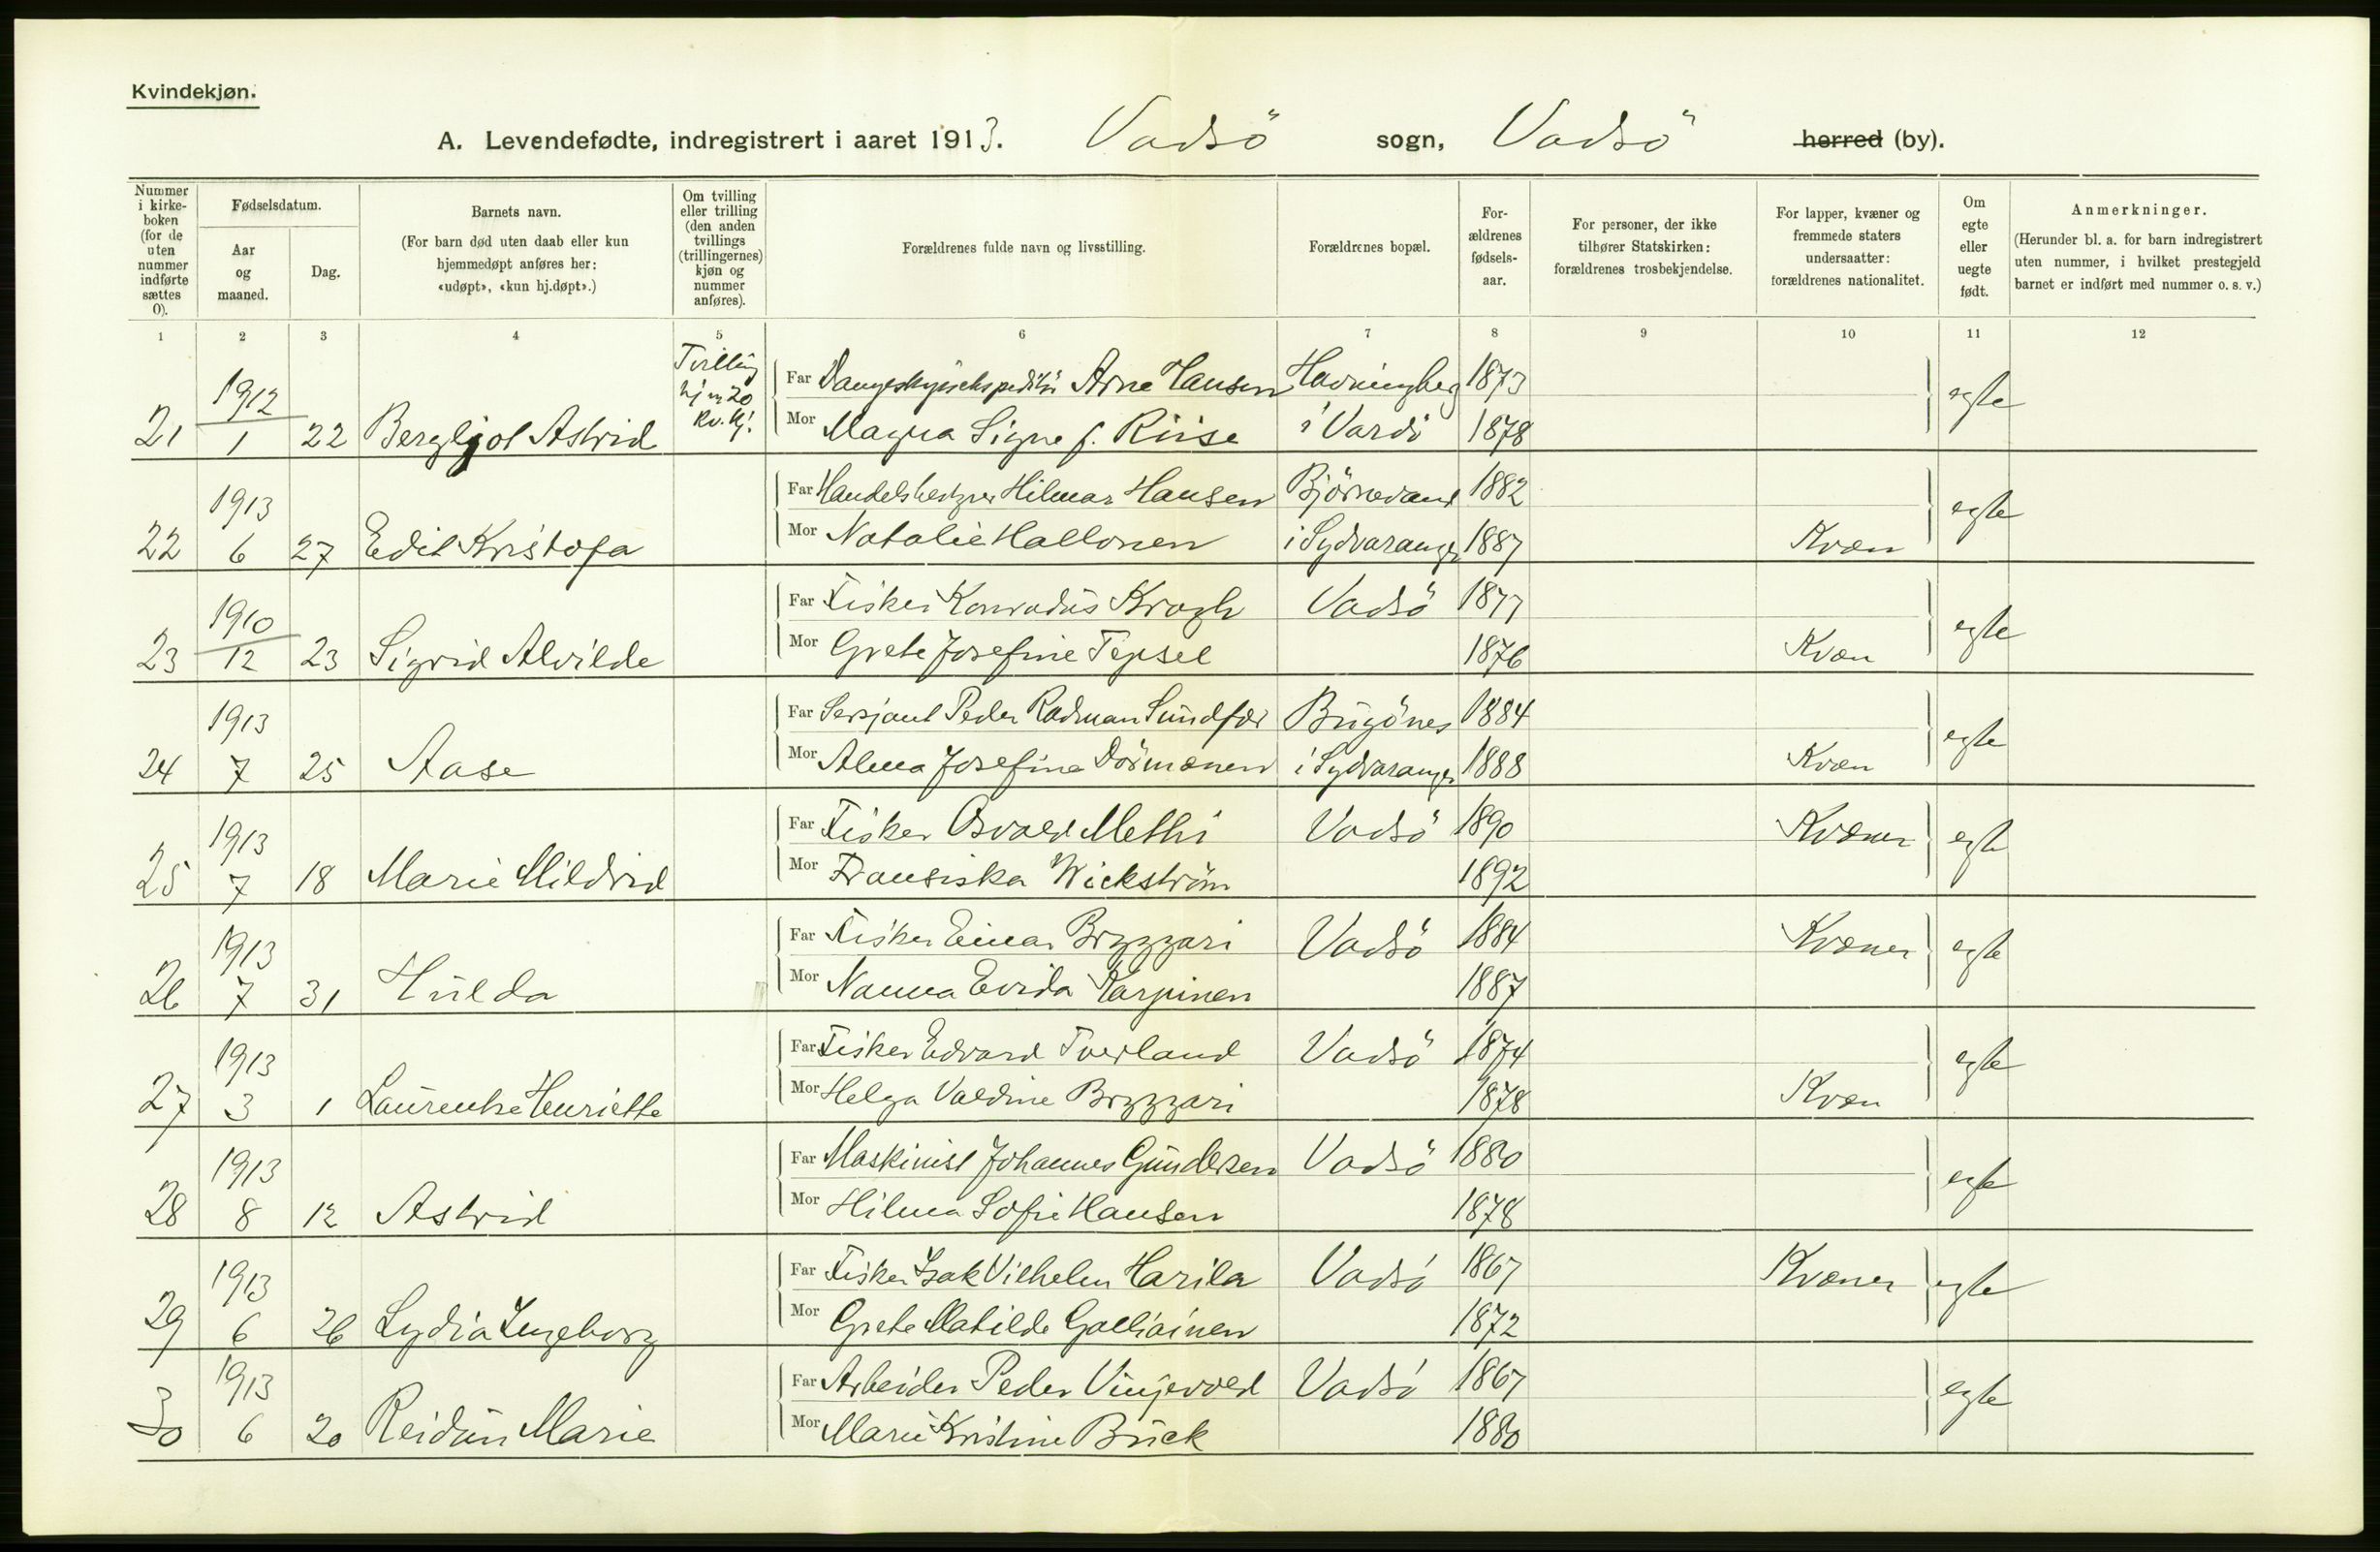 Kvindekjøn.
A. Levendefødte, indregistrert i aaret 1913. Vadsö sogn, Vadsö herred (by).
Nummer i kirke-boken (for de uten nummer indførte sættes 0).
Fødselsdatum.
Aar og maaned.
Dag.
Barnets navn.
(For barn død uten daab eller kun hjemmedøpt anføres her: «udøpt», «kun hj.døpt».)
Om tvilling eller trilling (den anden tvillings (trillingernes) kjøn og nummer anføres).
Forældrenes fulde navn og livsstilling.
Forældrenes bopæl.
For-ældrenes fødsels-aar.
For personer, der ikke tilhører Statskirken: forældrenes trosbekjendelse.
For lapper, kvæner og fremmede staters undersaatter: forældrenes nationalitet.
Om egte eller uegte født.
Anmerkninger.
(Herunder bl. a. for barn indregistrert uten nummer, i hvilket prestegjeld barnet er indført med nummer o. s. v.)
1 2 3 4 5 6 7 8 9 10 11 12
Tvilling
20
Kv. Kj.
Far Arne Hansen Havningberg 1873 egte
21 1912 1 22 Bergljot Astrid Mor Magna Signe f. Riise i Vardö 1878
Far Hilmar Hansen Björnevand 1882 egte
22 1913 6 27 Edit Kristofa Mor Natalie Hallonen i Sydvaranger 1887 Kvæn
Far Fisker Konradus Krogh Vadsö 1877 egte
23 1910 12 23 Sigrid Alvilde Mor Grete Josefine Tepsel 1876 Kvæn
Far Sersjant Peder Rodman Sundfær Bugönes 1884 egte
24 1913 7 25 Aase Mor Alma Josefine i Sydvaranger 1888 Kvæn
Far Fisker Osvald Methi Vadsö 1890 Kvæner egte
25 1913 7 18 Marie Mildrid Mor Fransiska Wickström 1892
Far Fisker Einar Bryggari Vadsö 1884 Kvæner egte
26 1913 7 31 Hulda Mor Nanna Evida Karpinen 1887
Far Fisker Edvard Tverland Vadsö 1874 egte
27 1913 3 1 Laurentse Henriette Mor Helga Valdine Bryggari 1878 Kvæn
Far Maskinist Johannes Gundersen Vadsö 1880 egte
28 1913 8 12 Astrid Mor Hilma Sofie Hansen 1878
Far Fisker Isak Vilhelm Harila Vadsö 1867 Kvæner egte
29 1913 6 26 Lydia Ingeborg Mor Grete Matilde Galliainen 1872
Far Arbeider Peder Vinjevold Vadsö 1867 egte
30 1913 6 20 Reidun Marie Mor Marie Kristine Buck 1880